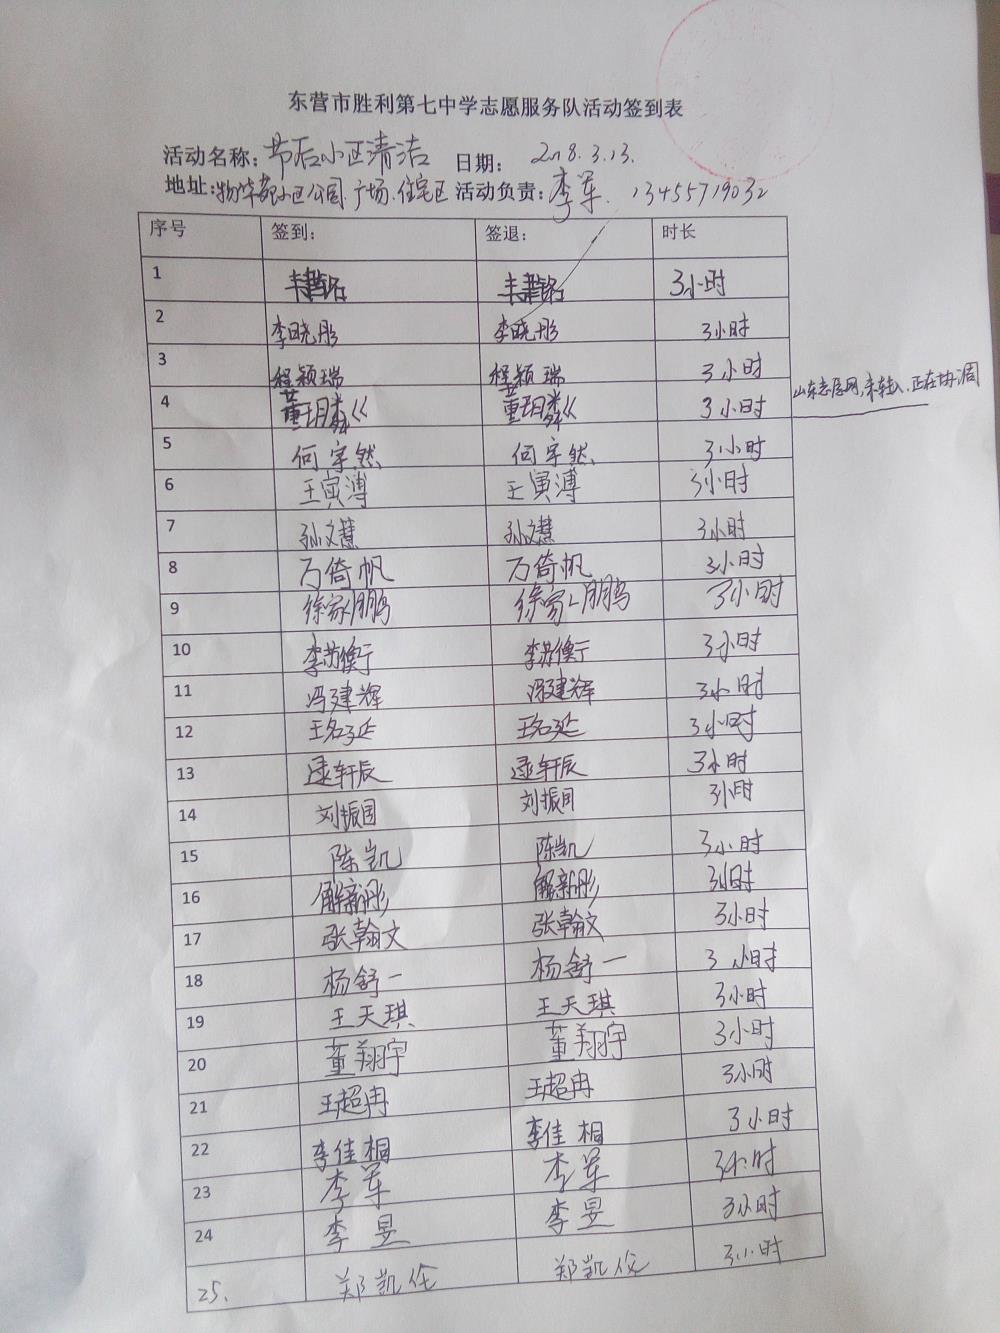 东营市胜利第七中学志愿服务队活动签到表
活动名称：节后小区清洁 日期： 2018.3.13.
地址：物华苑小区公园.广场.住宅区 活动负责：李军. 13455719032
序号 签到： 签退： 时长
1 3小时
2 李晓彤 李晓彤 3小时
3 程颖瑞 程颖瑞 3小时
4 董 董 3小时 山东志愿网,未转入.正在协调
5 何宇然 何宇然 3小时
6 王寅溥 王寅溥 3小时
7 孙文慧 孙文慧 3小时
8 万倚帆 万倚帆 3小时
9 徐家鹏 徐家鹏 3小时
10 李苏衡 李苏衡 3小时
11 冯建辉 冯建辉 3小时
12 王名延 王名延 3小时
13 逯轩辰 逯轩辰 3小时
14 刘振国 刘振国 3小时
15 陈凯 陈凯 3小时
16 解新彤 解新彤 3小时
17 张翰文 张翰文 3小时
18 杨舒一 杨舒一 3小时
19 王天琪 王天琪 3小时
20 董翔宇 董翔宇 3小时
21 王超冉 王超冉 3小时
22 李佳桐 李佳桐 3小时
23 李军 李军 3小时
24 李昱 李昱 3小时
25. 郑凯 郑凯 3小时